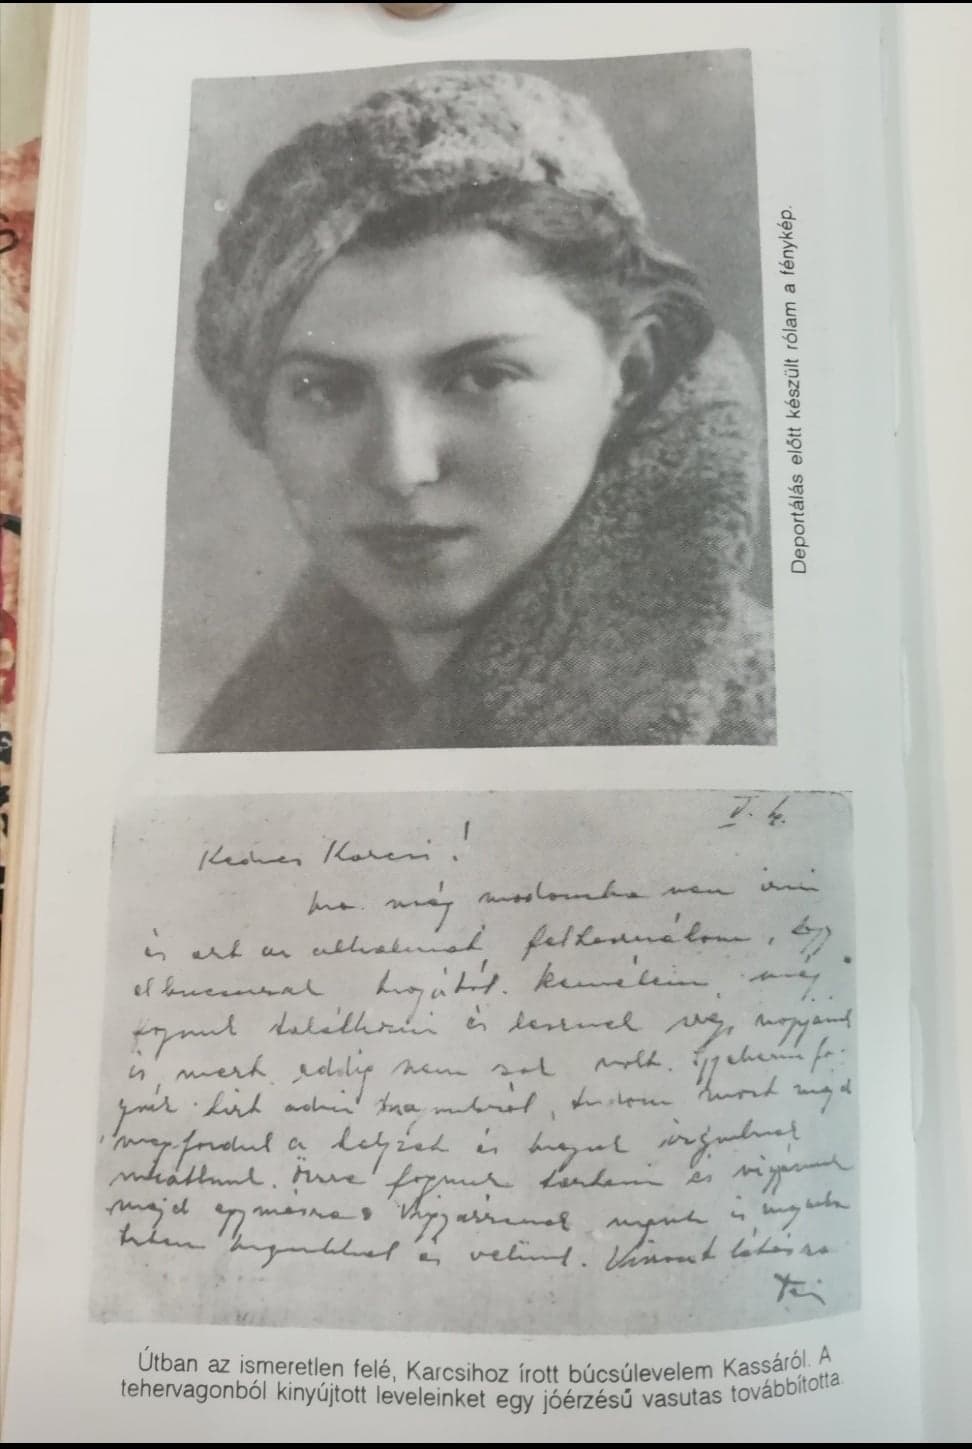 Deportálás előtt készült rólam a fénykép.
V. 4.
Kedves Karcsi!
még módomba van írni
és ezt az alkalmat felhasználom, hogy
elbucsuzzak magától. Remélem, még
fogunk találkozni és leszünk még
is, mert eddig nem sok volt.
hírt adni magunkról, tudom most majd
megfordul a helyzet és maguk izgulnak
miattunk. Össze fogunk tartani és vigyázunk
majd egymásra. Vigyázzanak
magukkal és velünk. Viszont látásra
Útban az ismeretlen felé, Karcsihoz írott búcsúlevelem Kassáról. A
tehervagonból kinyújtott leveleinket egy jóérzésű vasutas továbbította.